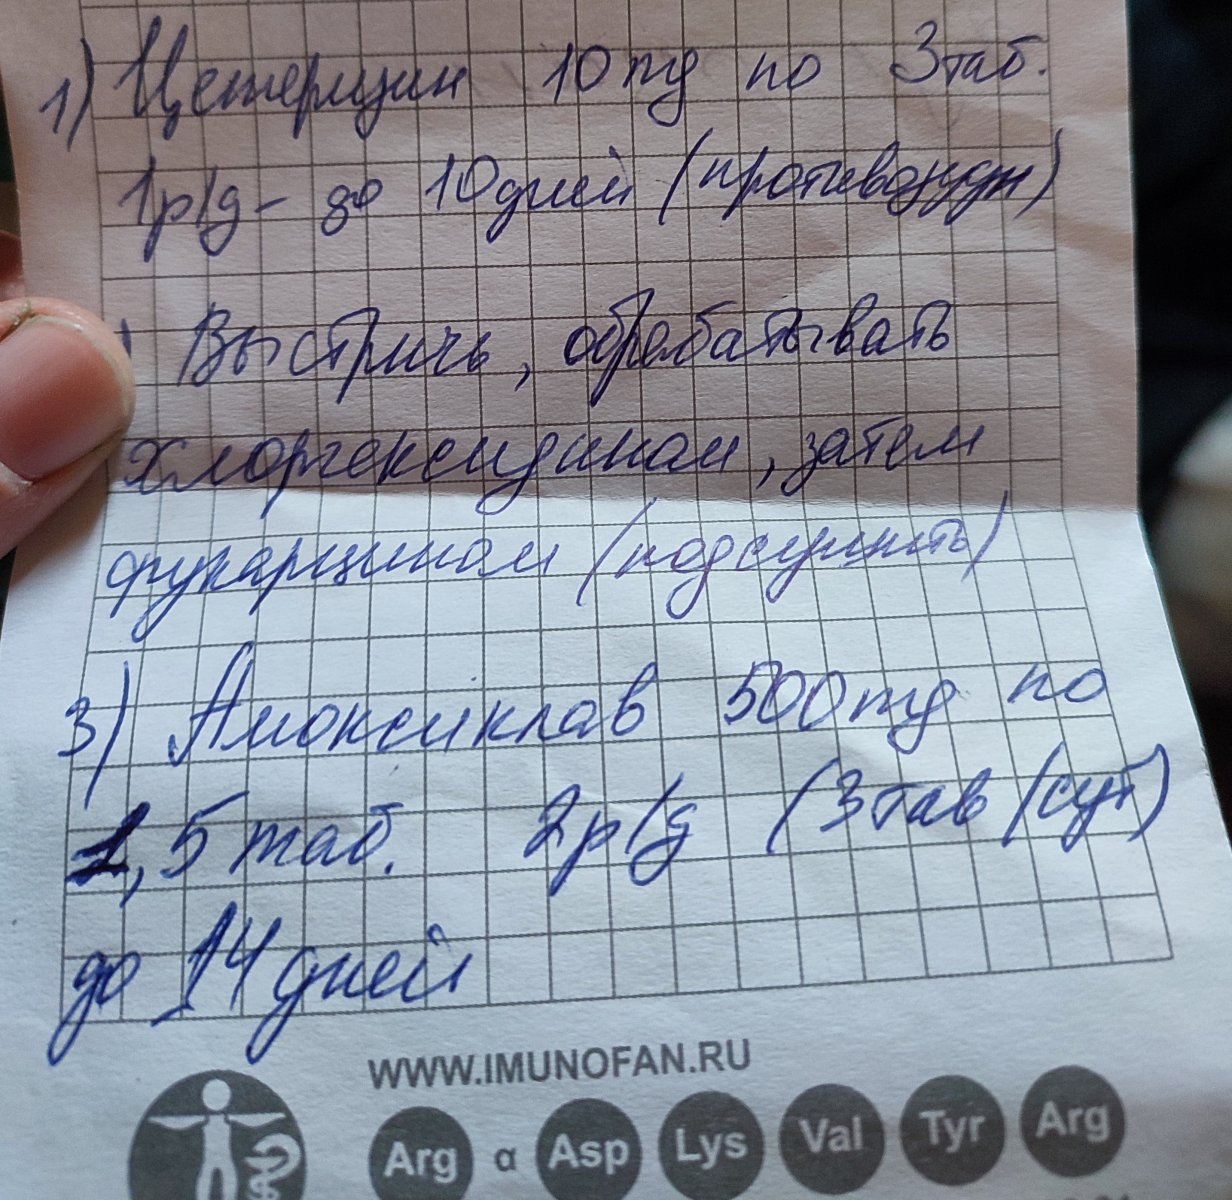 1) Цетеризин 10mg по 3таб.
1р/g - до 10дней (противозудн)
Выстричь, обрабатывать
хлоргексидином, затем
фукарцином (подсушить)
3) Амоксиклав 500mg по
1,5 таб. 2р/g (3таб/сут)
до 14 дней
WWW.IMUNOFAN.RU
Arg α Asp Lys Val Tyr Arg